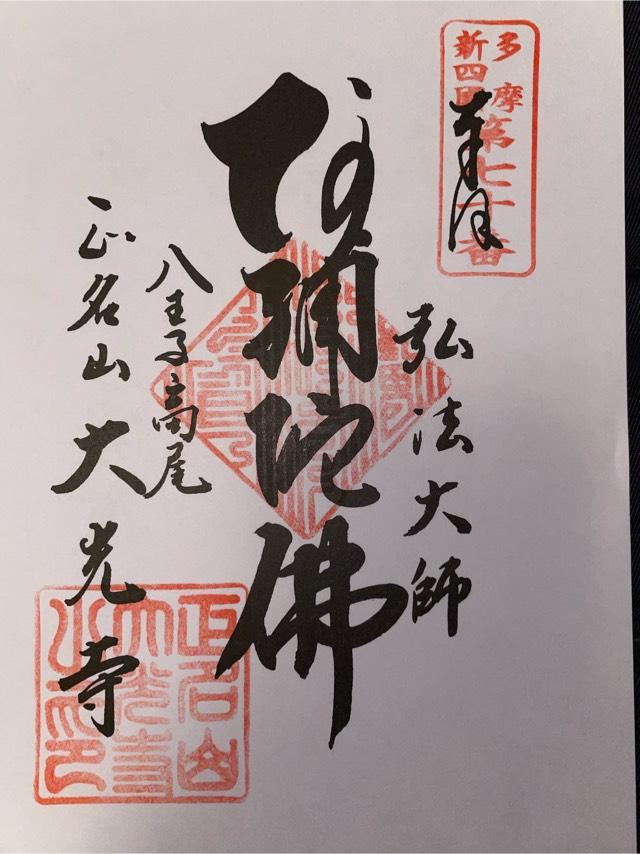 多摩
新四国
第七十番
奉拝
弘法大師
阿弥陀佛
八王子高尾
正名山 大光寺
正名山
大光寺
之印